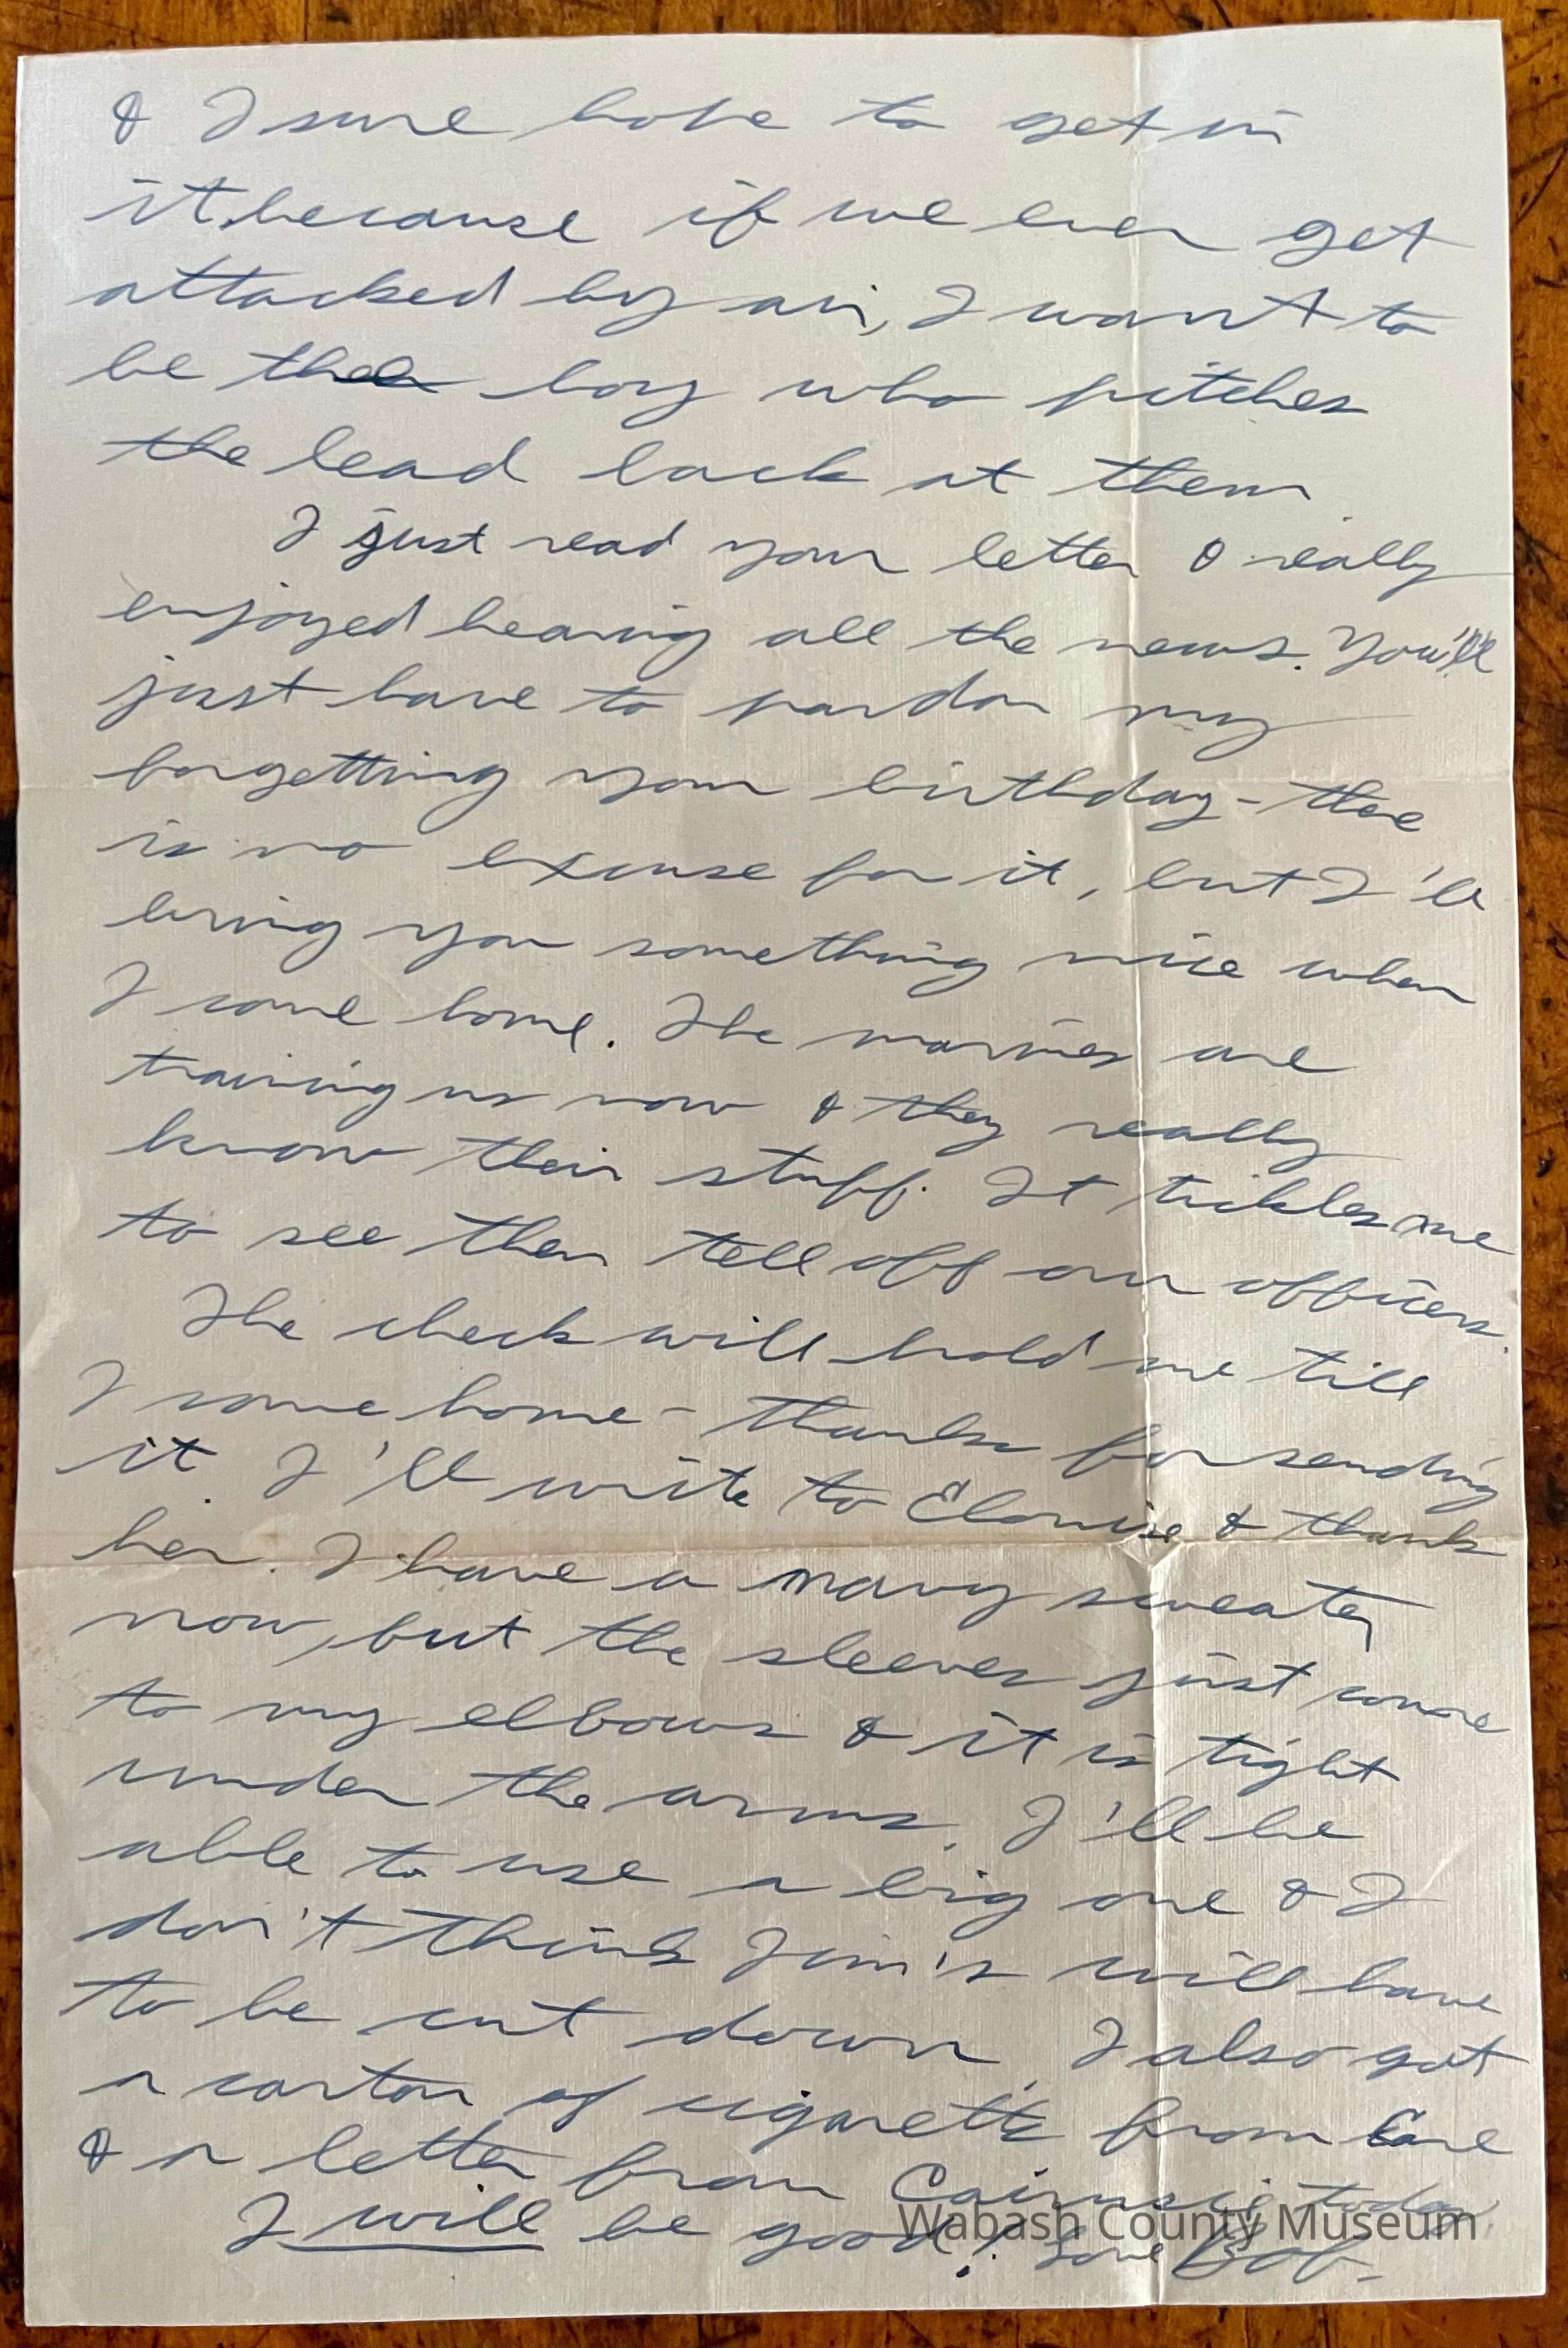 & I sure hope to get in
it because if we ever get
attacked by air, I want to
be the boy who pitches
the lead back at them
I just read your letter & really
enjoyed hearing all the news. You'll
just have to pardon my
forgetting your birthday - there
is no excuse for it, but I'll
bring you something nice when
I come home. The marines are
training us now & they really
know their stuff. It tickles me
to see them tell off our officers.
The check will hold me till
I come home - thanks for sending
it. I'll write to Eloise & thank
her. I have a navy sweater
now, but the sleeves just come
to my elbows & it is tight
under the arms. I'll be
able to use a big one & I
don't think Jim's will have
to be cut down. I also got
a carton of cigaretts from
& a letter from today.
I will be good! Love Bob-
Wabash County Museum